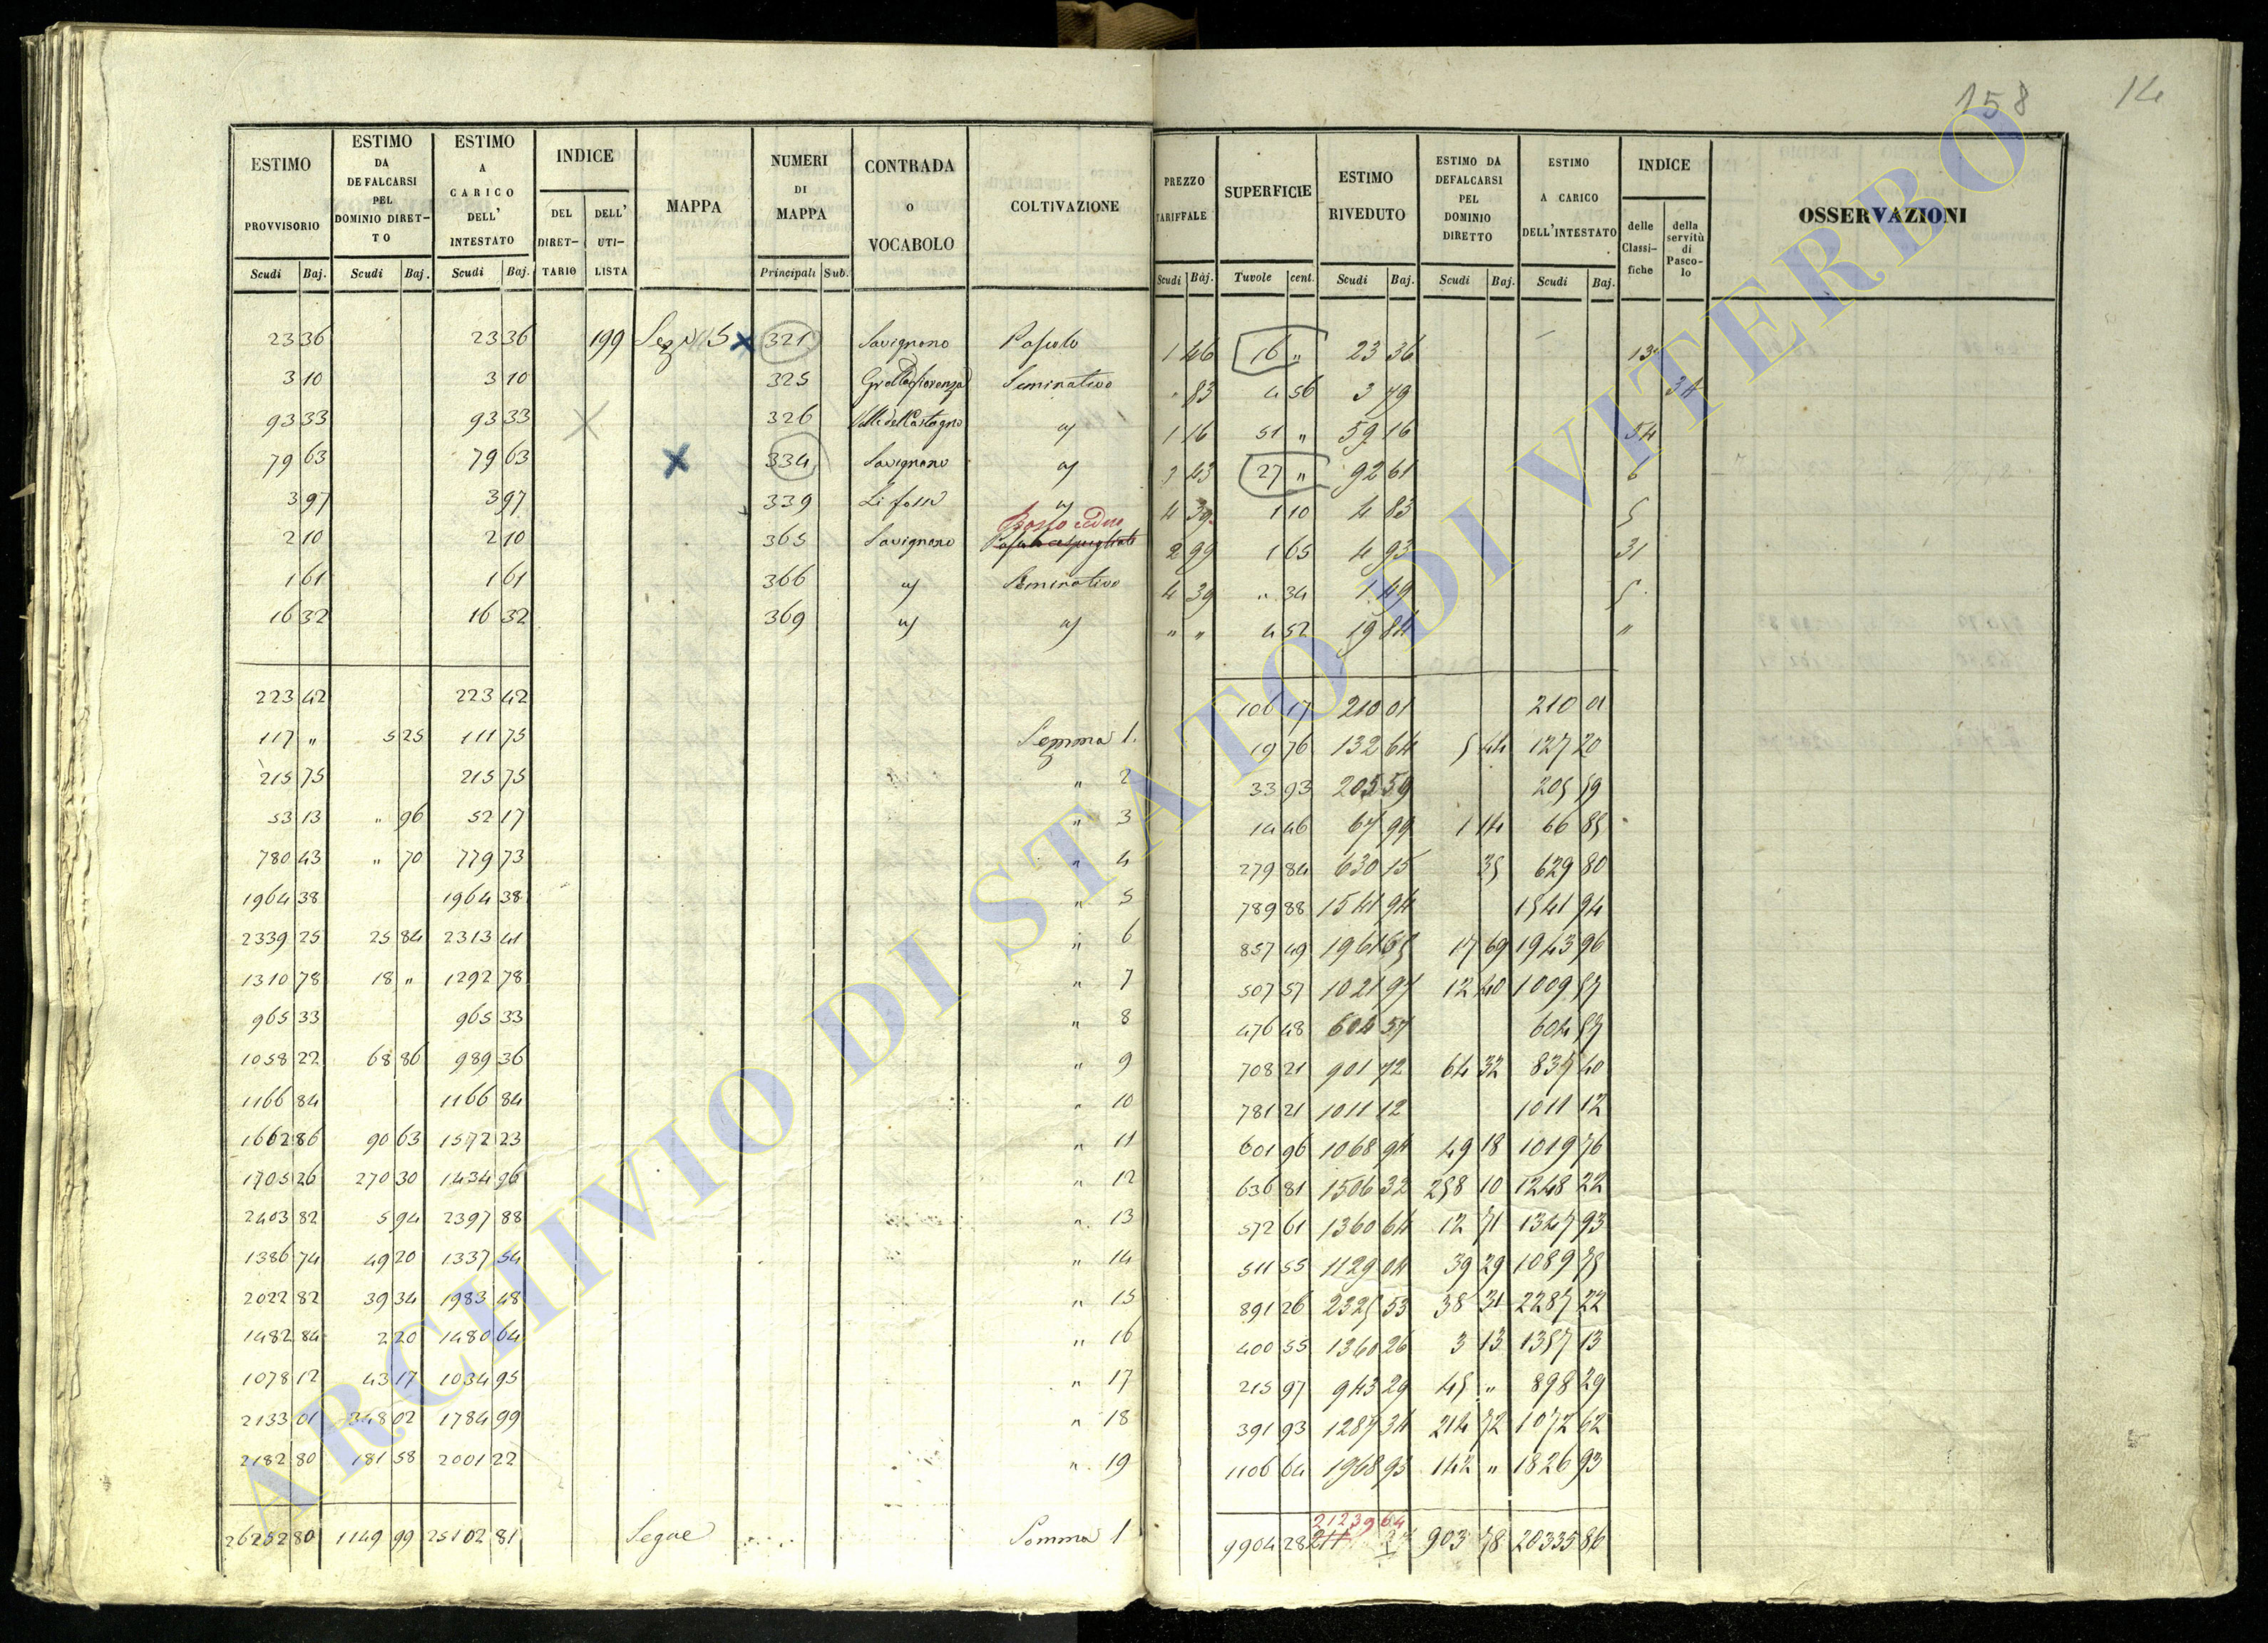 158 14
ESTIMO PROVVISORIO Scudi Baj. | ESTIMO DA DEFALCARSI PEL DOMINIO DIRET- TO Scudi Baj. | ESTIMO A CARICO DELL' INTESTATO Scudi Baj. | INDICE DEL DIRET- TARIO DELL' UTI- LISTA | MAPPA | NUMERI DI MAPPA Principali Sub. | CONTRADA O VOCABOLO | COLTIVAZIONE | PREZZO TARIFFALE Scudi Baj. | SUPERFICIE Tavole cent. | ESTIMO RIVEDUTO Scudi Baj. | ESTIMO DA DEFALCARSI PEL DOMINIO DIRETTO Scudi Baj. | ESTIMO A CARICO DELL'INTESTATO Scudi Baj. | INDICE delle Classi- fiche della servitù di Pasco- lo | OSSERVAZIONI
23 36 23 36 199 Sez 321 Savignano Pascolo 1 46 16 " 23 36 13
3 10 3 10 325 Seminativo " 83 4 56 3 79 34
93 33 93 33 326 1 16 51 " 59 16 54
79 63 79 63 334 Savignano 27 " 92 61 6
3 97 3 97 339 Li fossi 4 39 1 10 4 83 5
2 10 2 10 365 Savignano Bosco ceduo Pascolo cespugliato 2 99 1 65 4 93 31
1 61 1 61 366 Seminativo 4 39 " 34 1 49 5
16 32 16 32 369 " " 4 52 19 84 "
223 42 223 42 106 17 210 01 210 01
117 " 5 25 111 75 Somma 1. 19 76 132 64 5 44 127 20
215 75 215 75 " 2 33 93 205 59 205 59
53 13 " 96 52 17 " 3 14 46 67 99 1 14 66 85
780 43 " 70 779 73 " 4 279 84 630 15 35 629 80
1964 38 1964 38 " 5 789 88 1541 94 1541 94
2339 25 25 84 2313 41 " 6 857 49 1961 65 17 69 1943 96
1310 78 18 " 1292 78 " 7 507 57 1021 97 12 40 1009 57
965 33 965 33 " 8 476 48 604 57 604 57
1058 22 68 86 989 36 " 9 708 21 901 72 64 32 837 40
1166 84 1166 84 " 10 781 21 1011 12 1011 12
1662 86 90 63 1572 23 " 11 601 96 1068 94 49 18 1019 76
1705 26 270 30 1434 96 " 12 636 81 1506 32 258 10 1248 22
2403 82 5 94 2397 88 " 13 572 61 1360 64 12 71 1347 93
1386 74 49 20 1337 54 " 14 511 55 1129 04 39 29 1089 75
2022 82 39 34 1983 48 " 15 891 26 2325 53 38 31 2287 22
1482 84 2 20 1480 64 " 16 400 55 1360 26 3 13 1357 13
1078 12 43 17 1034 95 " 17 215 97 943 29 45 " 898 29
2133 01 348 02 1784 99 " 18 391 93 1287 34 214 72 1072 62
2182 80 181 58 2001 22 " 19 1106 64 1968 93 142 " 1826 93
26252 80 1149 99 25102 81 Segue Somma 1 9904 28 21239 64 903 78 20335 86
ARCHIVIO DI STATO DI VITERBO